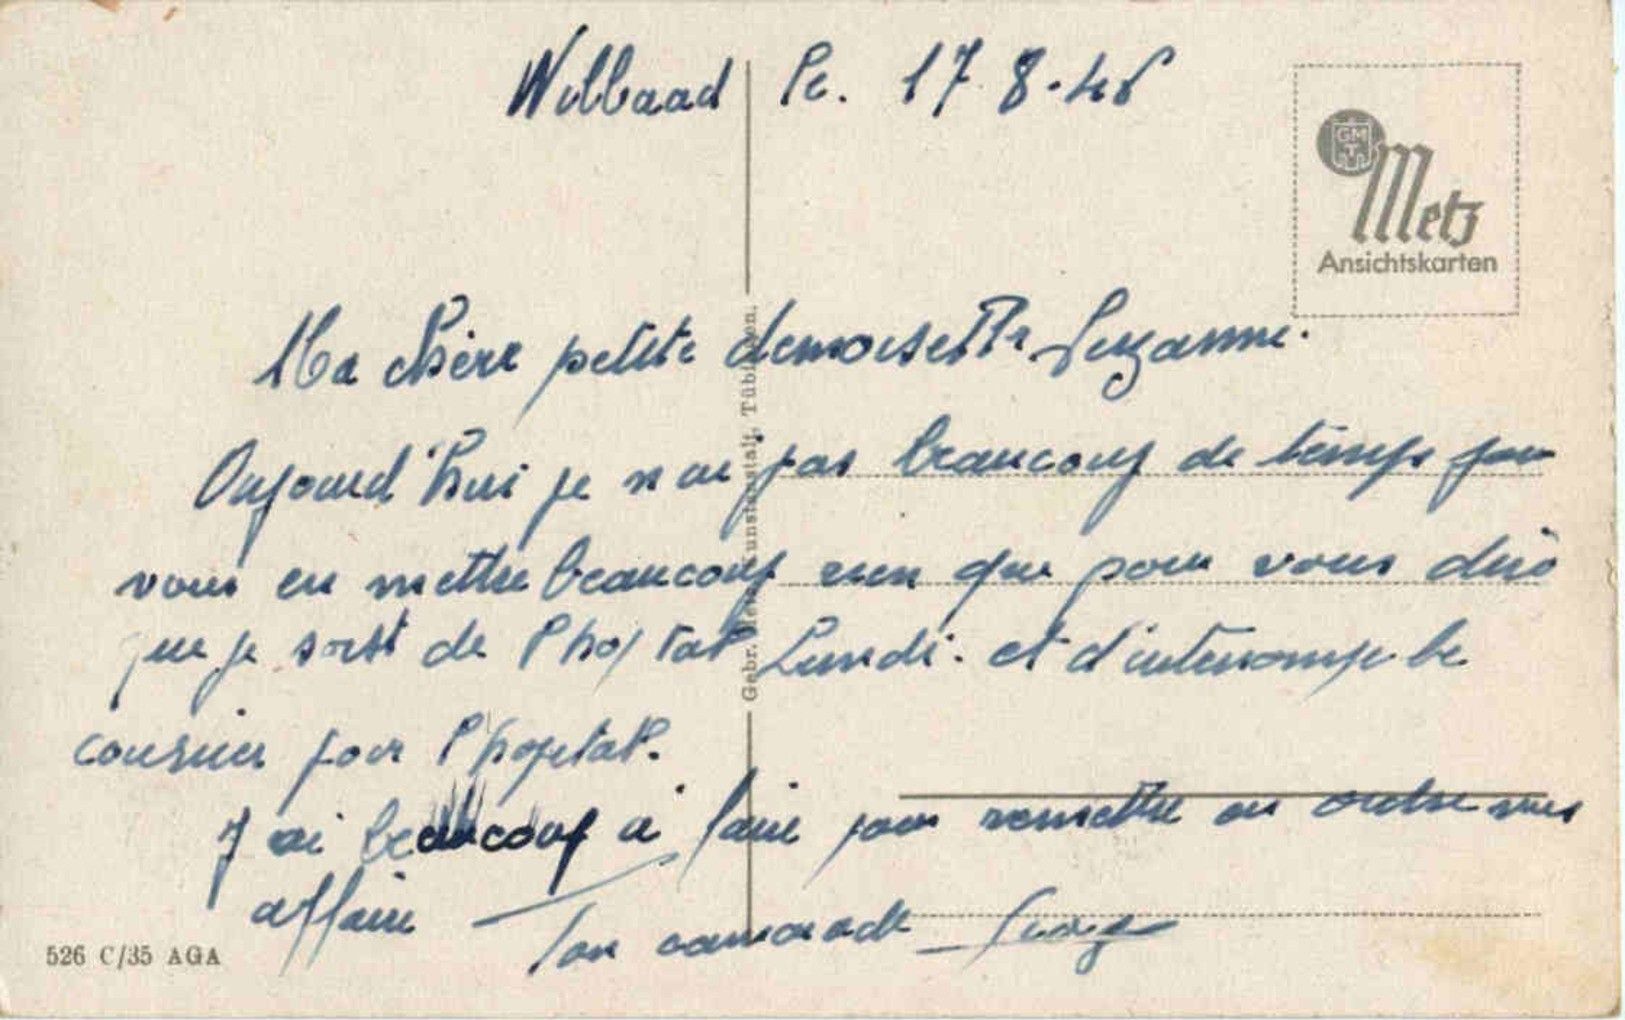 Wilbaad le. 17.8.46
GMT
Metz
Ansichtskarten
Ma chère petite demoiselle Suzanne.
Aujourd'hui je n ai pas beaucoup de temps pour
vous en mettre beaucoup rien que pour vous dire
que je sort de l'hopital Lundi. et d'interrompe le
courrier pour l'hopital.
J ai beaucoup a faire pour remettre en ordre mes
affaire
Ton camarade
Gebr. Metz, Kunstanstalt, Tübingen.
526 C/35 AGA